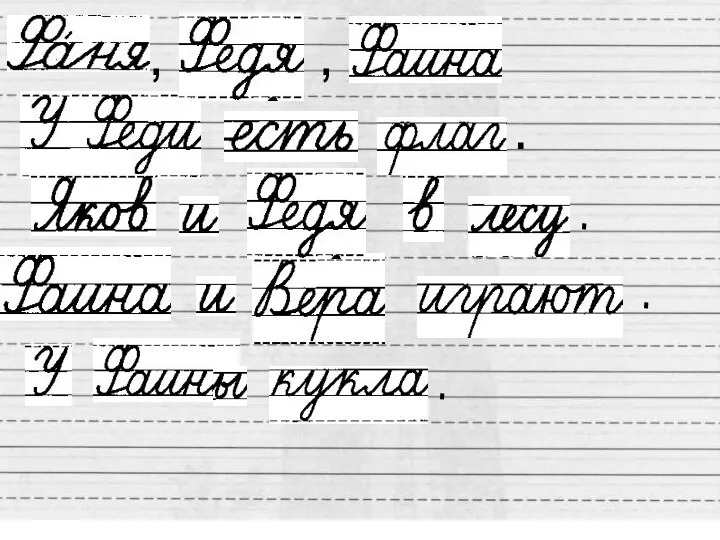 Фа́ня, Федя, Фаина
У Феди есть флаг.
Яков и Федя в лесу.
Фаина и Вера играют.
У Фаины кукла.